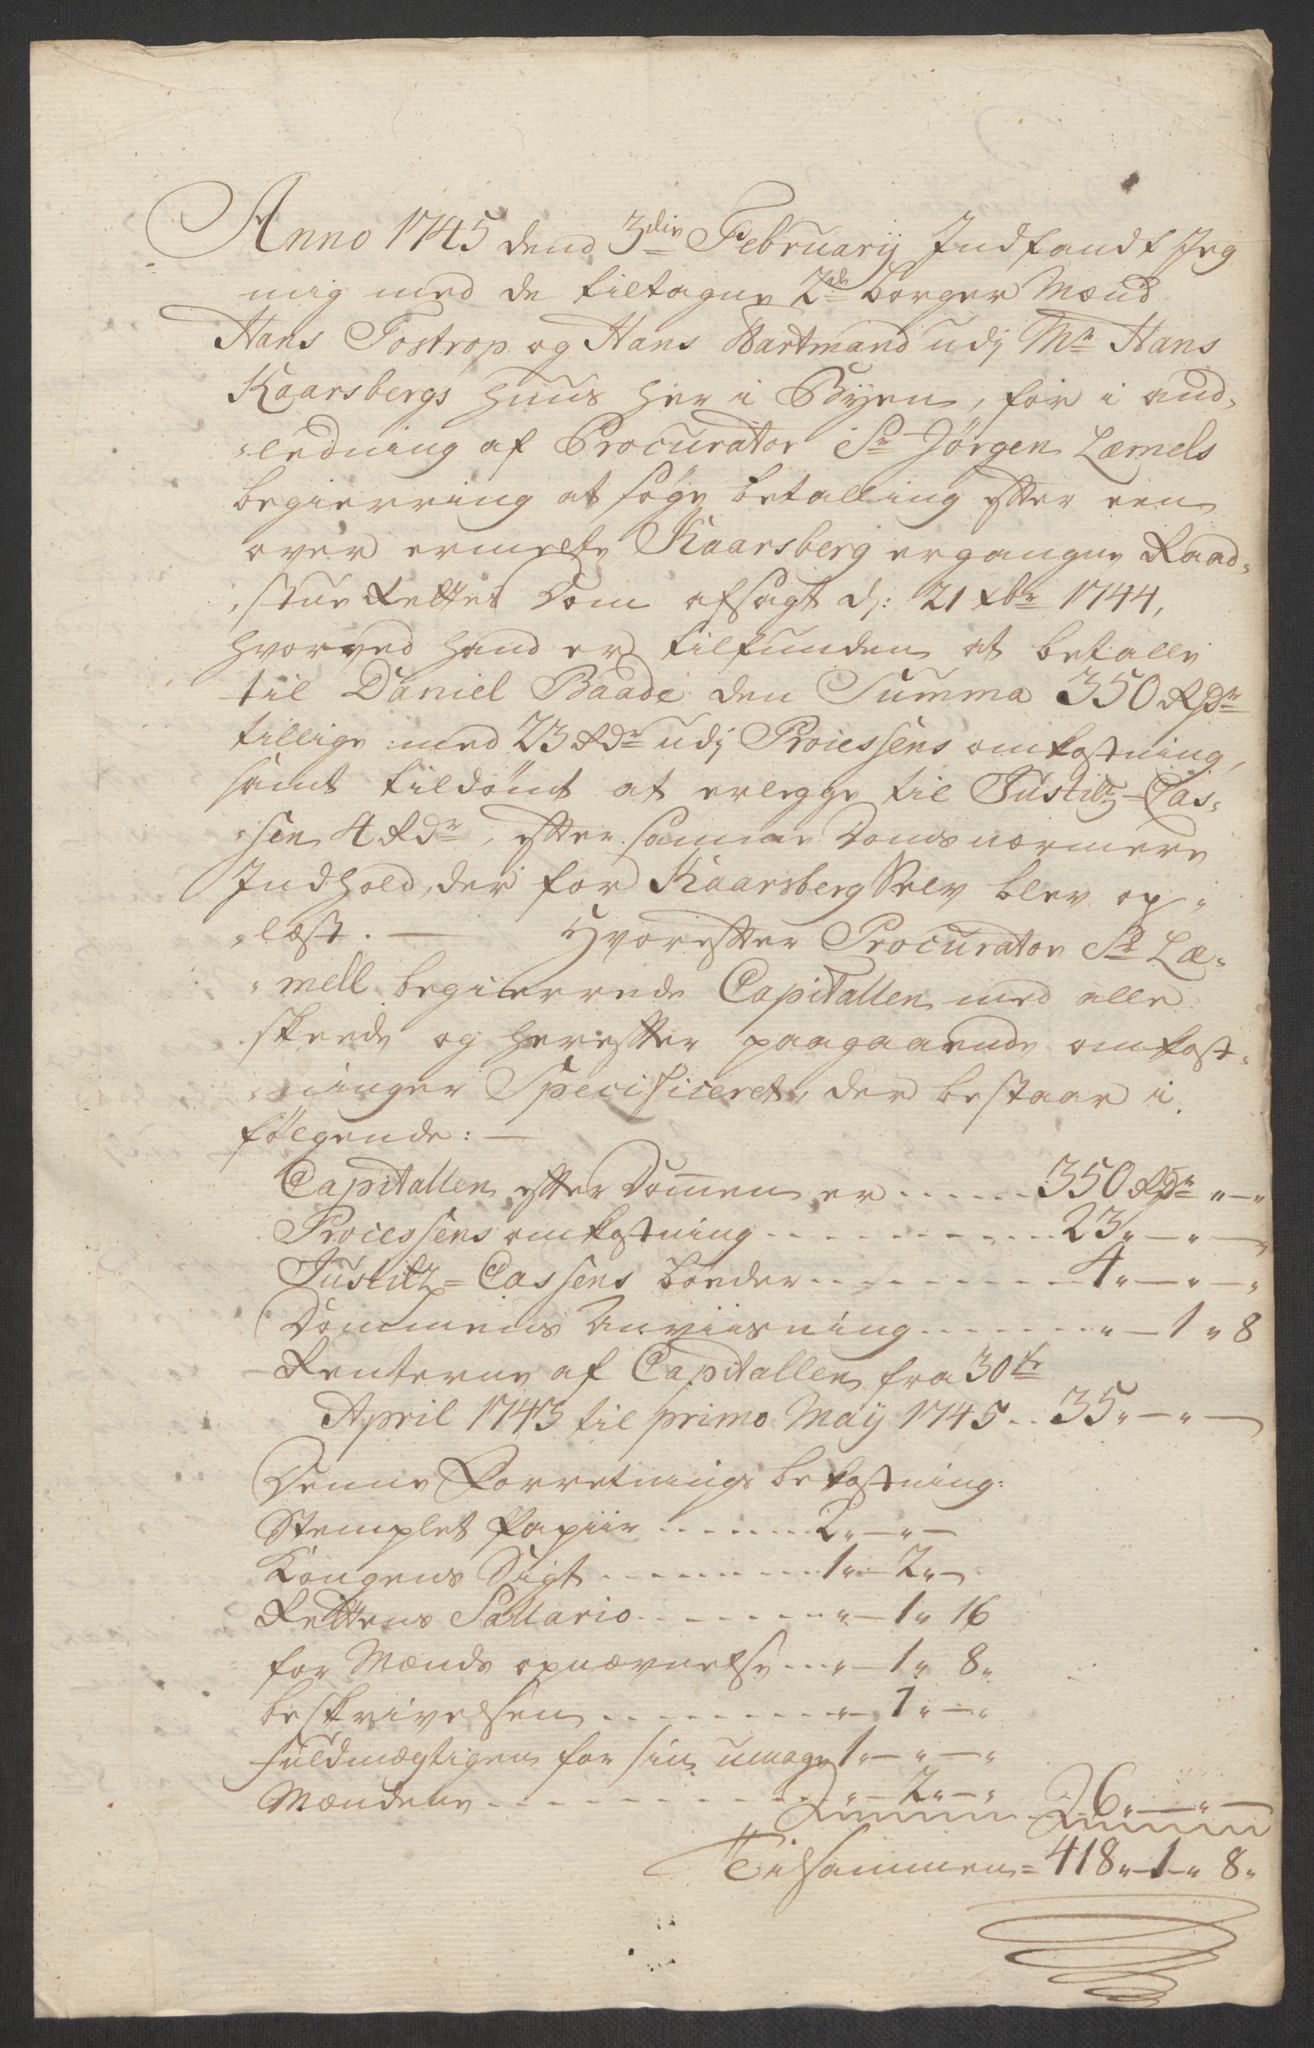 Anno 1745 dend 3die February Indfandt Jeg
mig med de tiltagne 2de borger Mænd
Hans Tostrop og Hans Hartmand udj Mr Hans
Kaarsbergs Huus her i Byen, for i and-
-ledning af Procurator Sr Jørgen Læmels
begierring at søge betalling efter een
over ermelte Kaarsberg ergangne Raad-
-stue Rettes Dom afsagt d: 21 xbr 1744,
hvorved hand er tilfunden at betalle
til Daniel Baade den Summa 350 Rdr
tillige med 23 Rdr udj Processens omkostning,
samt tildømt at erlegge til Justitz-Cas-
-sen 4 Rdr, efter samme Doms nærmere
Indhold, der for Kaarsberg Selv blev op-
-læst. — Hvorefter Procurator Sr Læ-
-mell begierrede Capitallen med alle
skeede og herefter paagaaende omkost-
-ninger Specificeret, der bestaar i
følgende: —
Capitallen efter Dommen er ...... 350 Rdr "—"
Processens omkostning ........... 23 "—"—
Justitz=Cassens bøder .......... 4 "—"—"
Dommens Anviisning ....... "—1 " 8
Renterne af Capitallen fra 30te
April 1743 til primo May 1745 .. 35 "—"—
Denne Forretnings bekostning:
Stemplet Papiir ....... 2 "—"—
Kongens Sigt ......... 1 "—2 "—
Rettens Sallario ........ "—1 " 16
for Mænds opnævnelse ... "—1 " 8 "
beskrivelsen ......... "—1 "—"
fuldmægtigen for sin umage 1 "—"—"
Mændene ........... "—2 "—" 6 "—"—
Tilsammen = 418 "—1 " 8 "